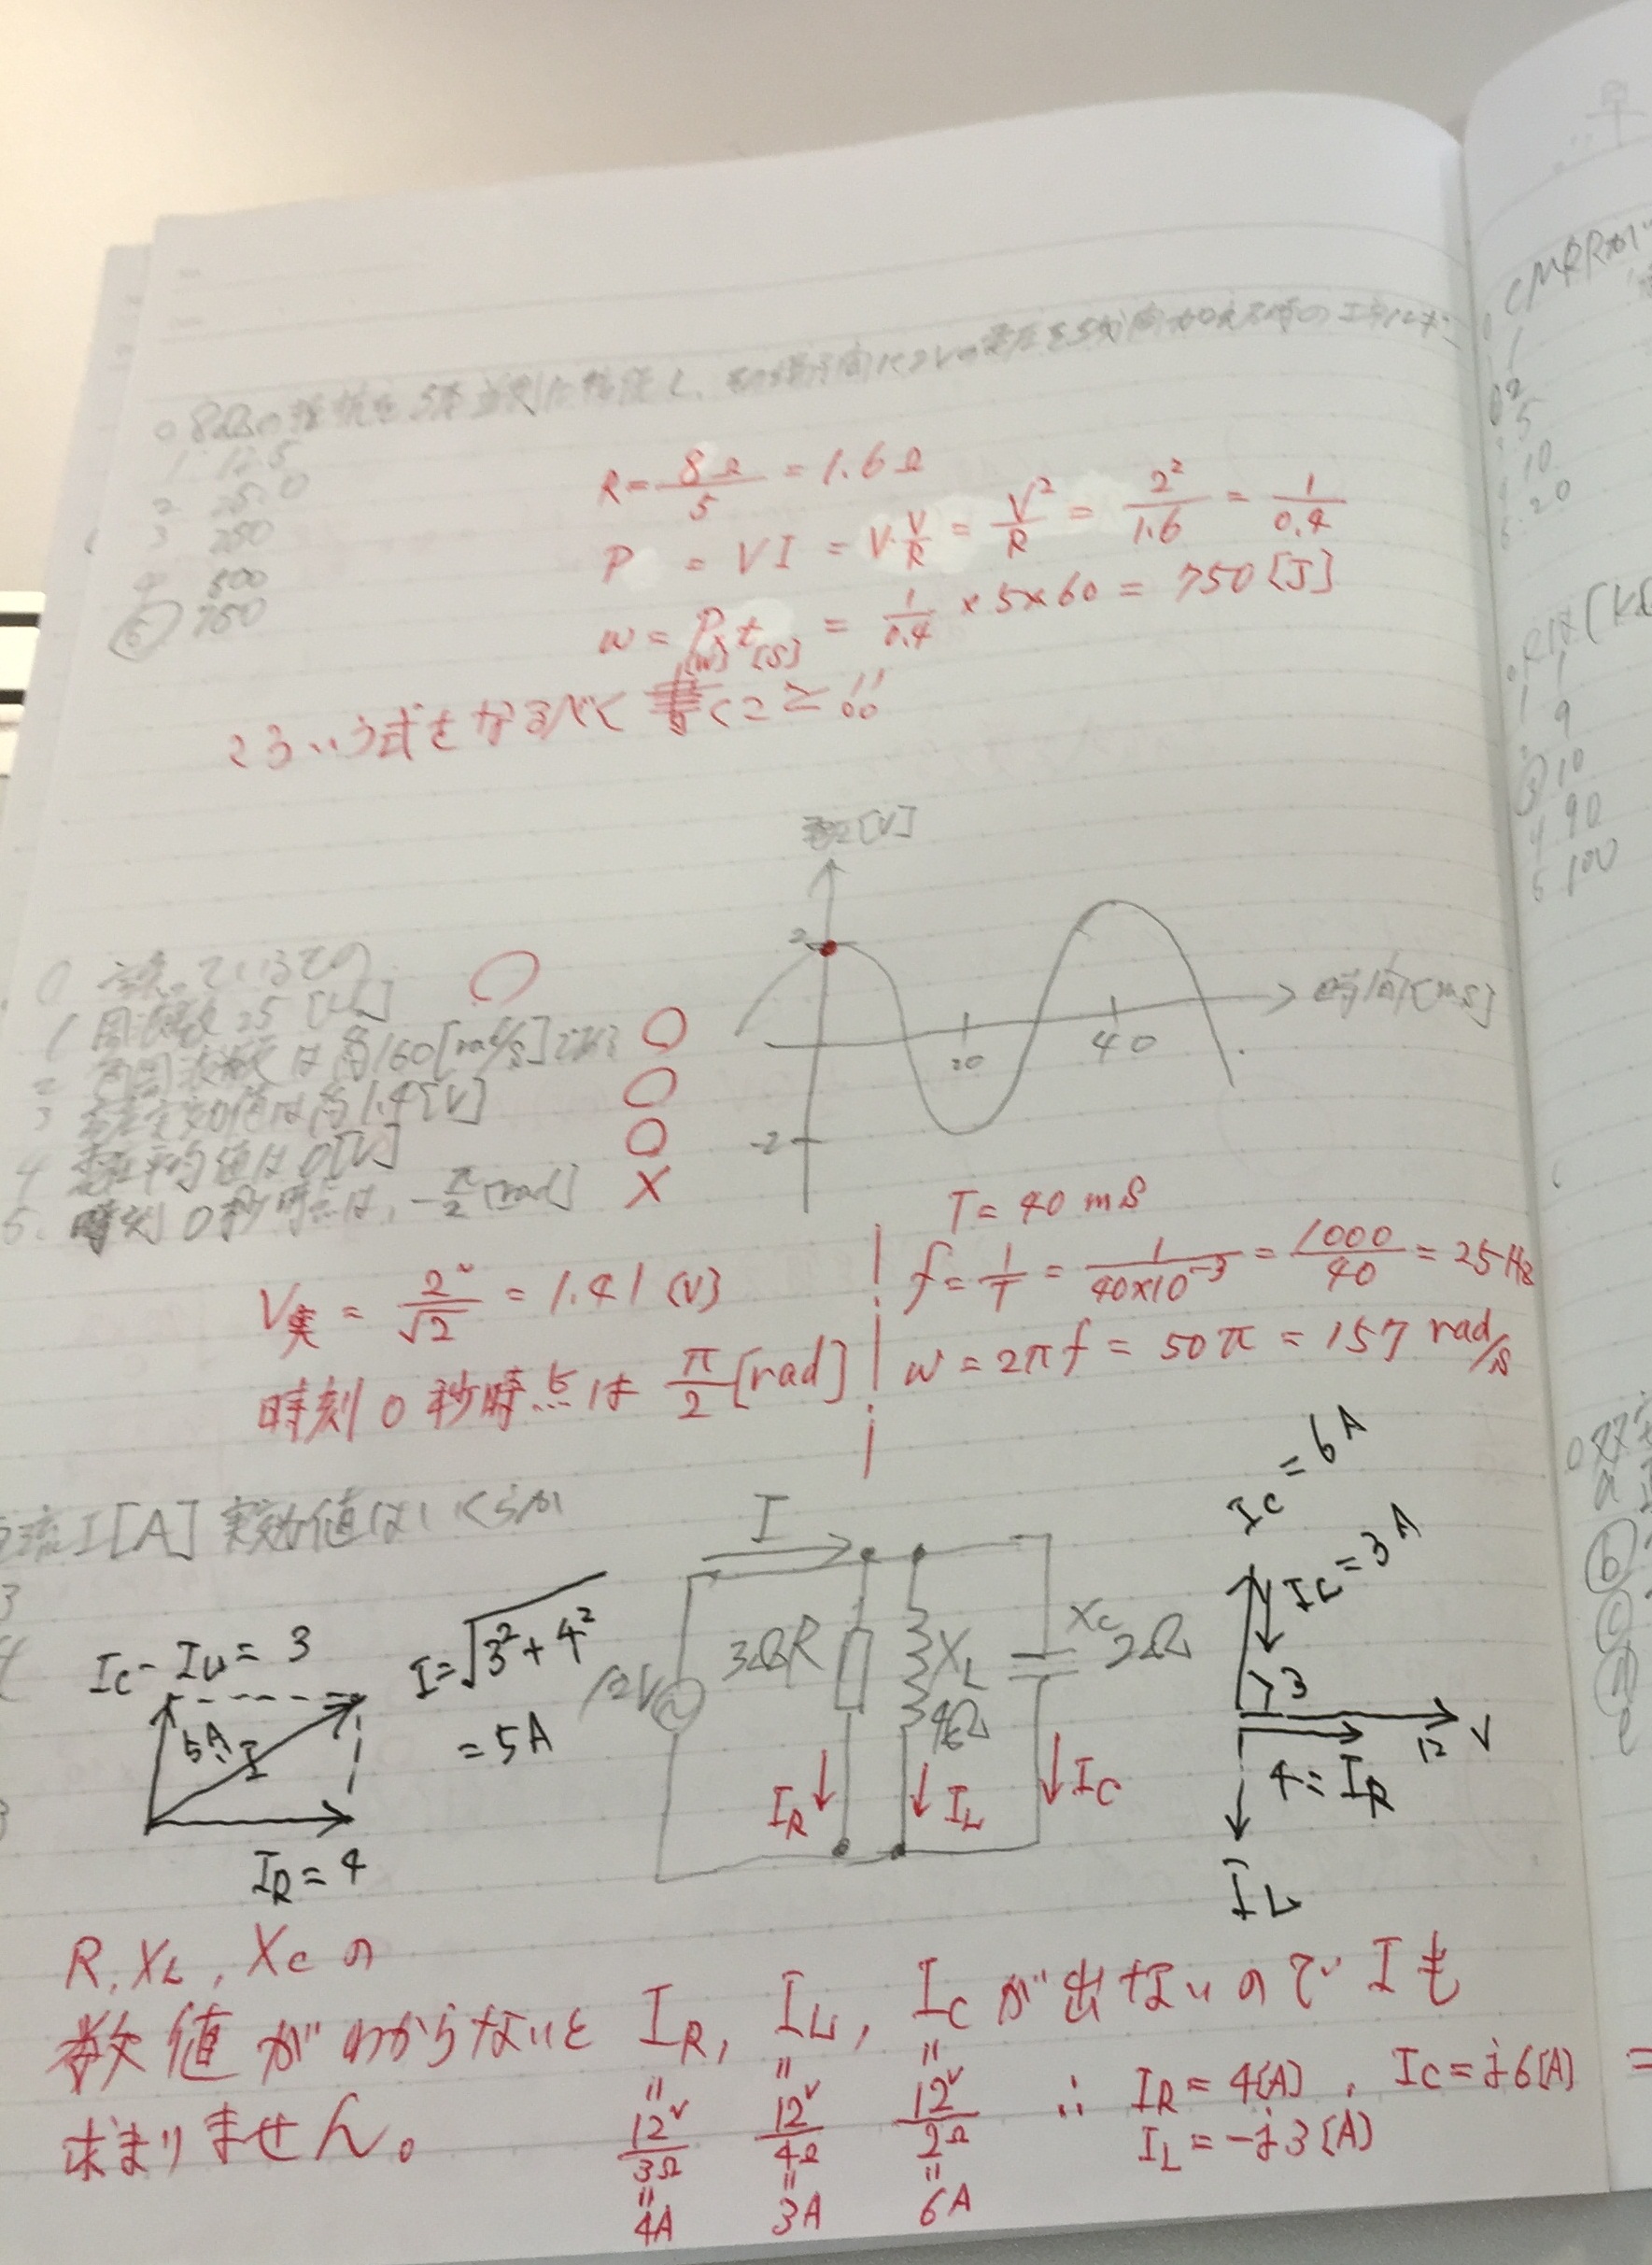 8Ωの抵抗を5本並列に接続し、
1 12.5
2 25.0
3 250
4 500
⑤ 750
R = 8Ω/5 = 1.6Ω
P = VI = V·V/R = V²/R = 2²/1.6 = 1/0.4
W = P[W] t[S] = 1/0.4 × 5×60 = 750 [J]
こういう式をなるべく書くこと!!
電圧[V]
2
-2
20
40
時間[ms]
誤っているもの ○
1 周波数 25 [Hz] ○
2 角周波数は約160[rad/s]である ○
3 電圧実効値は約1.4[V] ○
4 電圧平均値は0[V] ○
5. 時刻0秒時点は、-π/2[rad] ×
T = 40 mS
f = 1/T = 1/40×10⁻³ = 1000/40 = 25Hz
ω = 2πf = 50π = 157 rad/s
V実 = 2/√2 = 1.41 (V)
時刻0秒時点は π/2 [rad]
電流I[A]実効値はいくらか
3
4
3
IC - IL = 3
5A I
IR = 4
I = √3²+4²
= 5A
I
12V
3Ω R
XL
4Ω
XC
2Ω
IR
IL
IC
IC = 6A
IL = 3A
3
V
12
4 = IR
IL
R, XL, XCの
数値がわからないと IR, IL, ICが出ないのでIも
求まりません。
12V/3Ω = 4A
12V/4Ω = 3A
12V/2Ω = 6A
∴ IR = 4[A], IC = j6[A] =
IL = -j3[A]
CMRRが
1
2 5
10
5. 20
RIは[kΩ
1 1
9
③ 10
4 90
5 100
a
ⓑ
ⓒ
ⓓ
e